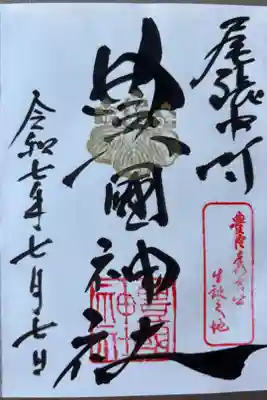 尾張中村
豊國神社
令和七年七月七日
豊國神社
豊臣秀吉公
生誕之地